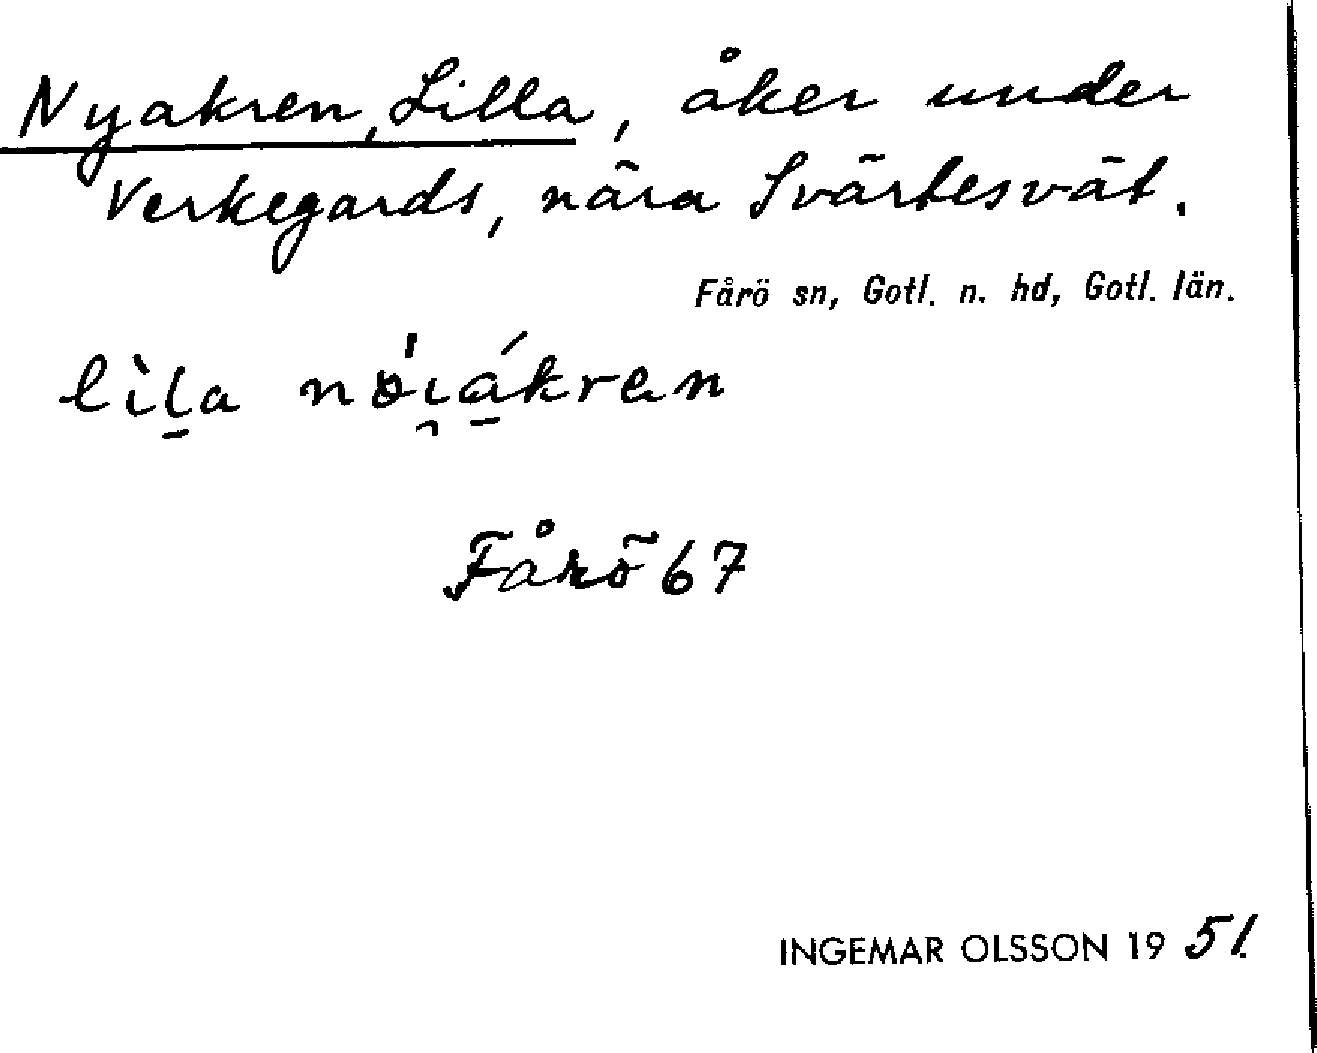 Nyakren, Lilla, åker under
Verkegards, nära Svärtesvät.
Fårö sn, Gotl. n. hd, Gotl. län.
lìl̠a nɵ́ı̯á̠kren
Fårö 67
INGEMAR OLSSON 19 51.